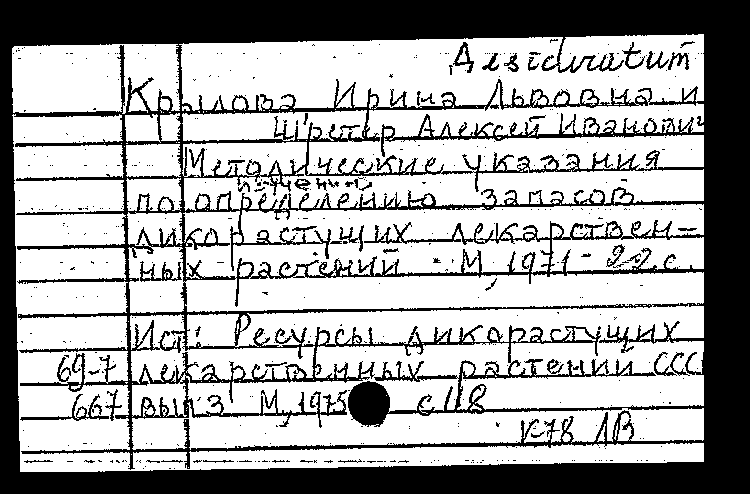 Desideratum
Крылова, Ирина Львовна и
Шретер Алексей Иванович
Методические указания
изучению
по определению запасов
дикорастущих лекарствен-
ных растений. М, 1971 - 22 с.
Ист: Ресурсы дикорастущих
69-7 лекарственных растений СССР
667 вып 3 М, 1975 с 118
К78 ЛВ